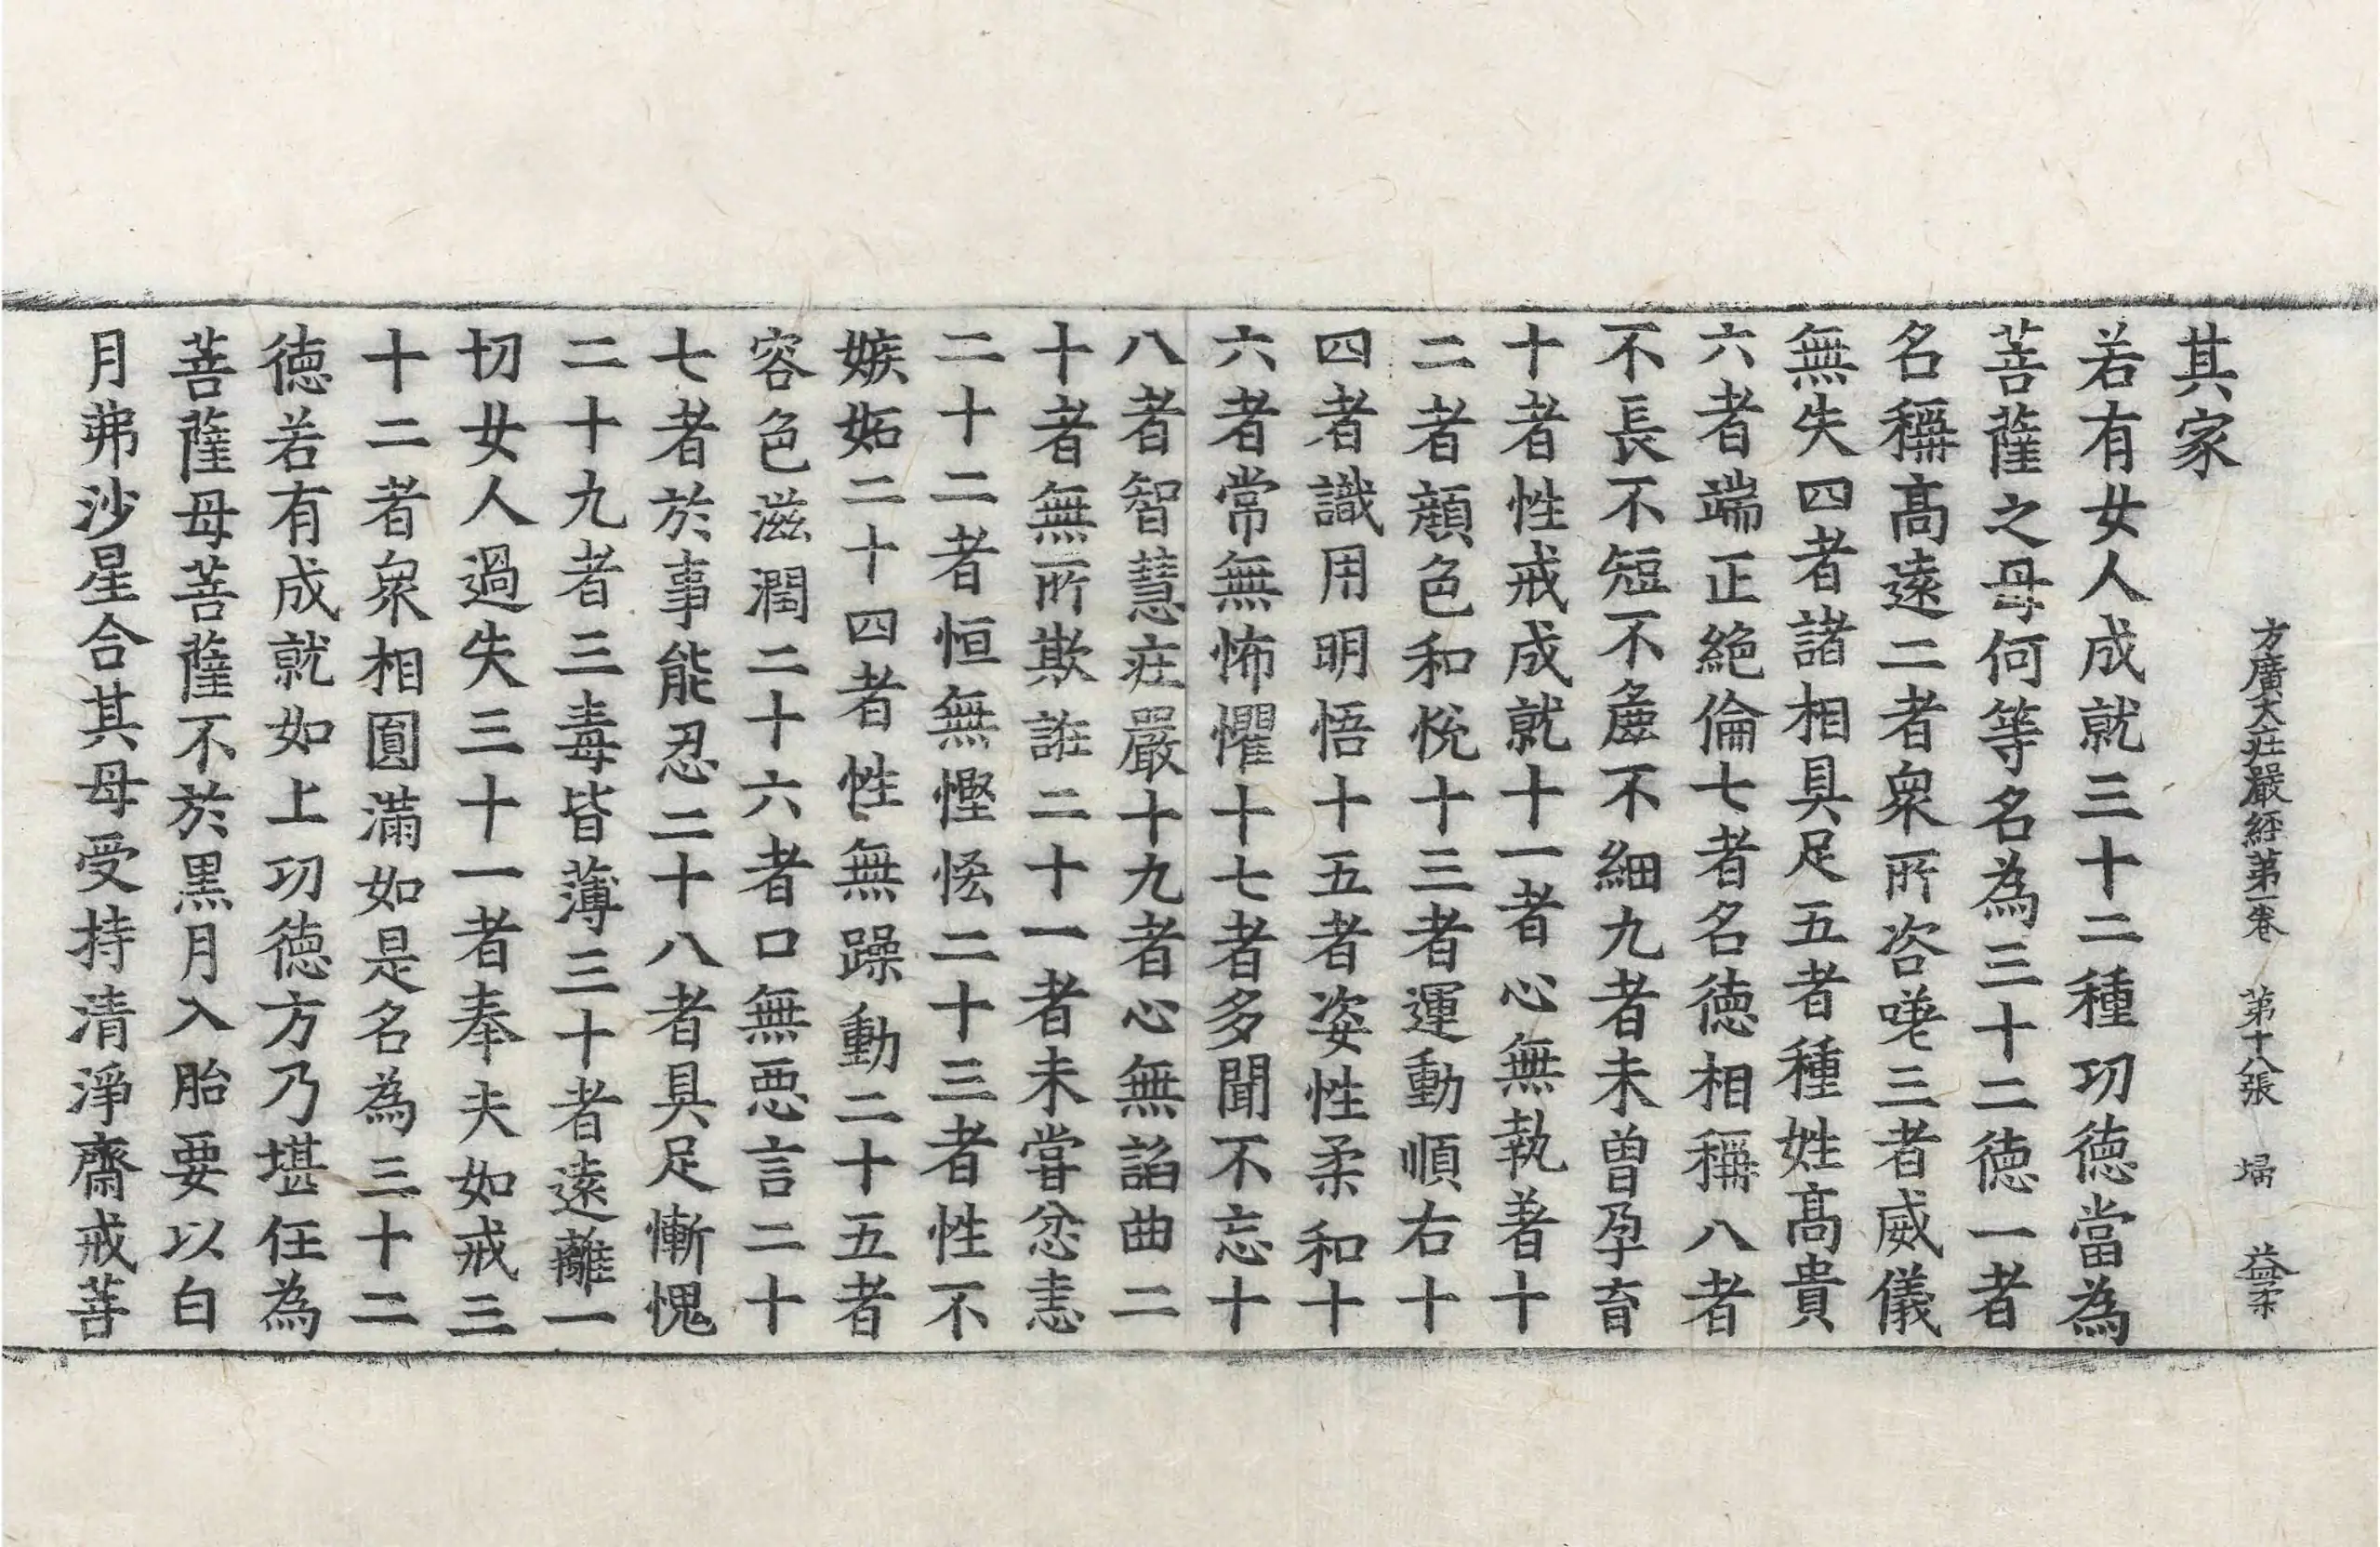 方廣大庄嚴經第一卷 第十八張 場 益柔
其家
若有女人成就三十二種功德當為
菩薩之母何等名為三十二德一者
名稱高遠二者衆所咨嗟三者威儀
無失四者諸相具足五者種姓高貴
六者端正絕倫七者名德相稱八者
不長不短不麁不細九者未曾孕育
十者性戒成就十一者心無執著十
二者顔色和悅十三者運動順右十
四者識用明悟十五者姿性柔和十
六者常無怖懼十七者多聞不忘十
八者智慧庄嚴十九者心無諂曲二
十者無所欺誑二十一者未嘗忿恚
二十二者恒無慳悋二十三者性不
嫉妬二十四者性無躁動二十五者
容色滋潤二十六者口無惡言二十
七者於事能忍二十八者具足慚愧
二十九者三毒皆薄三十者遠離一
切女人過失三十一者奉夫如戒三
十二者衆相圓滿如是名為三十二
德若有成就如上功德方乃堪任為
菩薩母菩薩不於黑月入胎要以白
月弗沙星合其母受持清淨齋戒菩